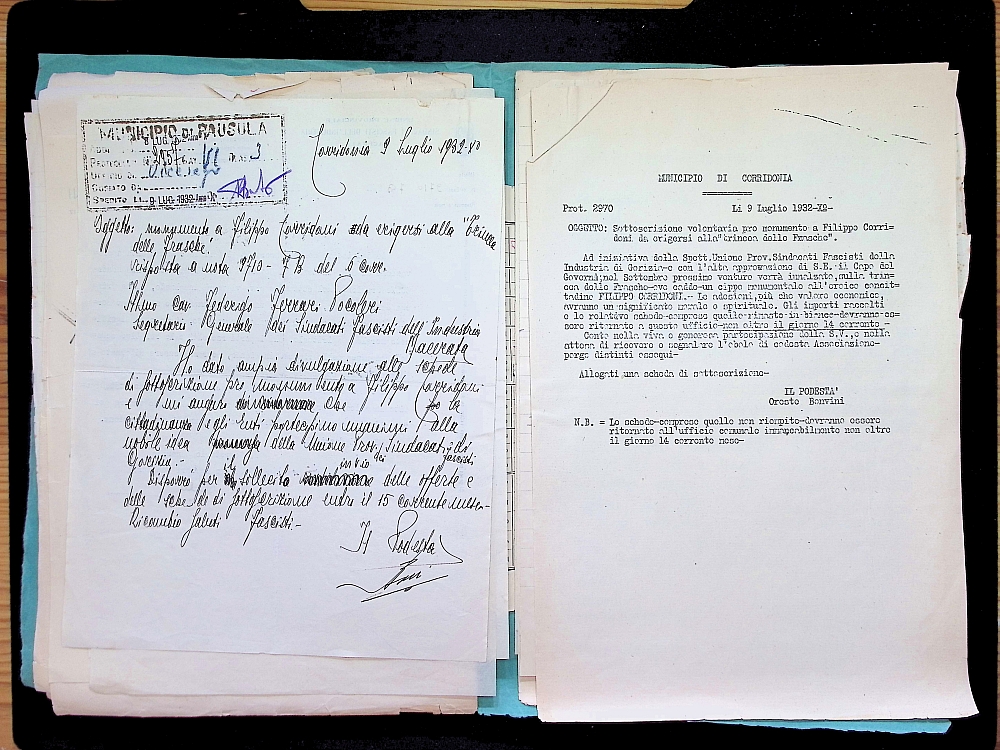 MUNICIPIO DI PAUSULA
8 LUG
VI 3
SPEDITO LI 9 LUG 1932
Corridonia 9 Luglio 1932-XO
Oggetto: monumento a Filippo Corridoni da erigersi alla "Trincea
delle Frasche"
risposta a nota 9710 - 7B del 6 corr.
Illmo Cav. Federigo Ferrari
Segretario Generale dei Sindacati Fascisti dell'Industria
Macerata
Ho dato ampia divulgazione alle schede
di sottoscrizione pro monumento a Filippo Corridoni
e mi auguro che la
cittadinanza e gli Enti partecipino unanimi alla
nobile idea della Unione Prov. Sindacati
fascisti
Gorizia.-
invio
Disporrò per il sollecito delle offerte e
delle schede di sottoscrizione entro il 15 corrente mese-
Ricambio saluti fascisti-
Il Podestà
MUNICIPIO DI CORRIDONIA
Prot. 2970 Li 9 Luglio 1932-XO-
OGGETTO: Sottoscrizione volontaria pro monumento a Filippo Corri=
doni da erigersi alla"trincea delle Frasche".
Ad iniziativa della Spett.Unione Prov.Sindacati Fascisti della
Industria di Gorizia-e con l'alta approvazione di S.E.il Capo del
Governo;nel Settembre prossimo venturo verrà innalzato,nella trin=
cea delle Frasche-ove cadde-un cippo monumentale all'eroico concit=
tadino FILIPPO CORRIDONI.- Le adesioni,più che valore economico,
avranno un significato morale e spirituale. Gli importi raccolti
e le relative schede-comprese quelle rimaste in bianco-dovranno es=
sere ritornate a questo ufficio-non oltre il giorno 14 corrente -
Conto nella viva e generosa partecipazione della S.V.,e nella
attesa di ricevere o segnalare l'obolo di codesta Associazione-
porgo distinti ossequi-
Allegati una scheda di sottoscrizione-
IL PODESTA'
Oreste Bonvini
N.B. = Le schede-comprese quelle non riempite-dovranno essere
ritornate all'ufficio comunale immancabilmente non oltre
il giorno 14 corrente mese-